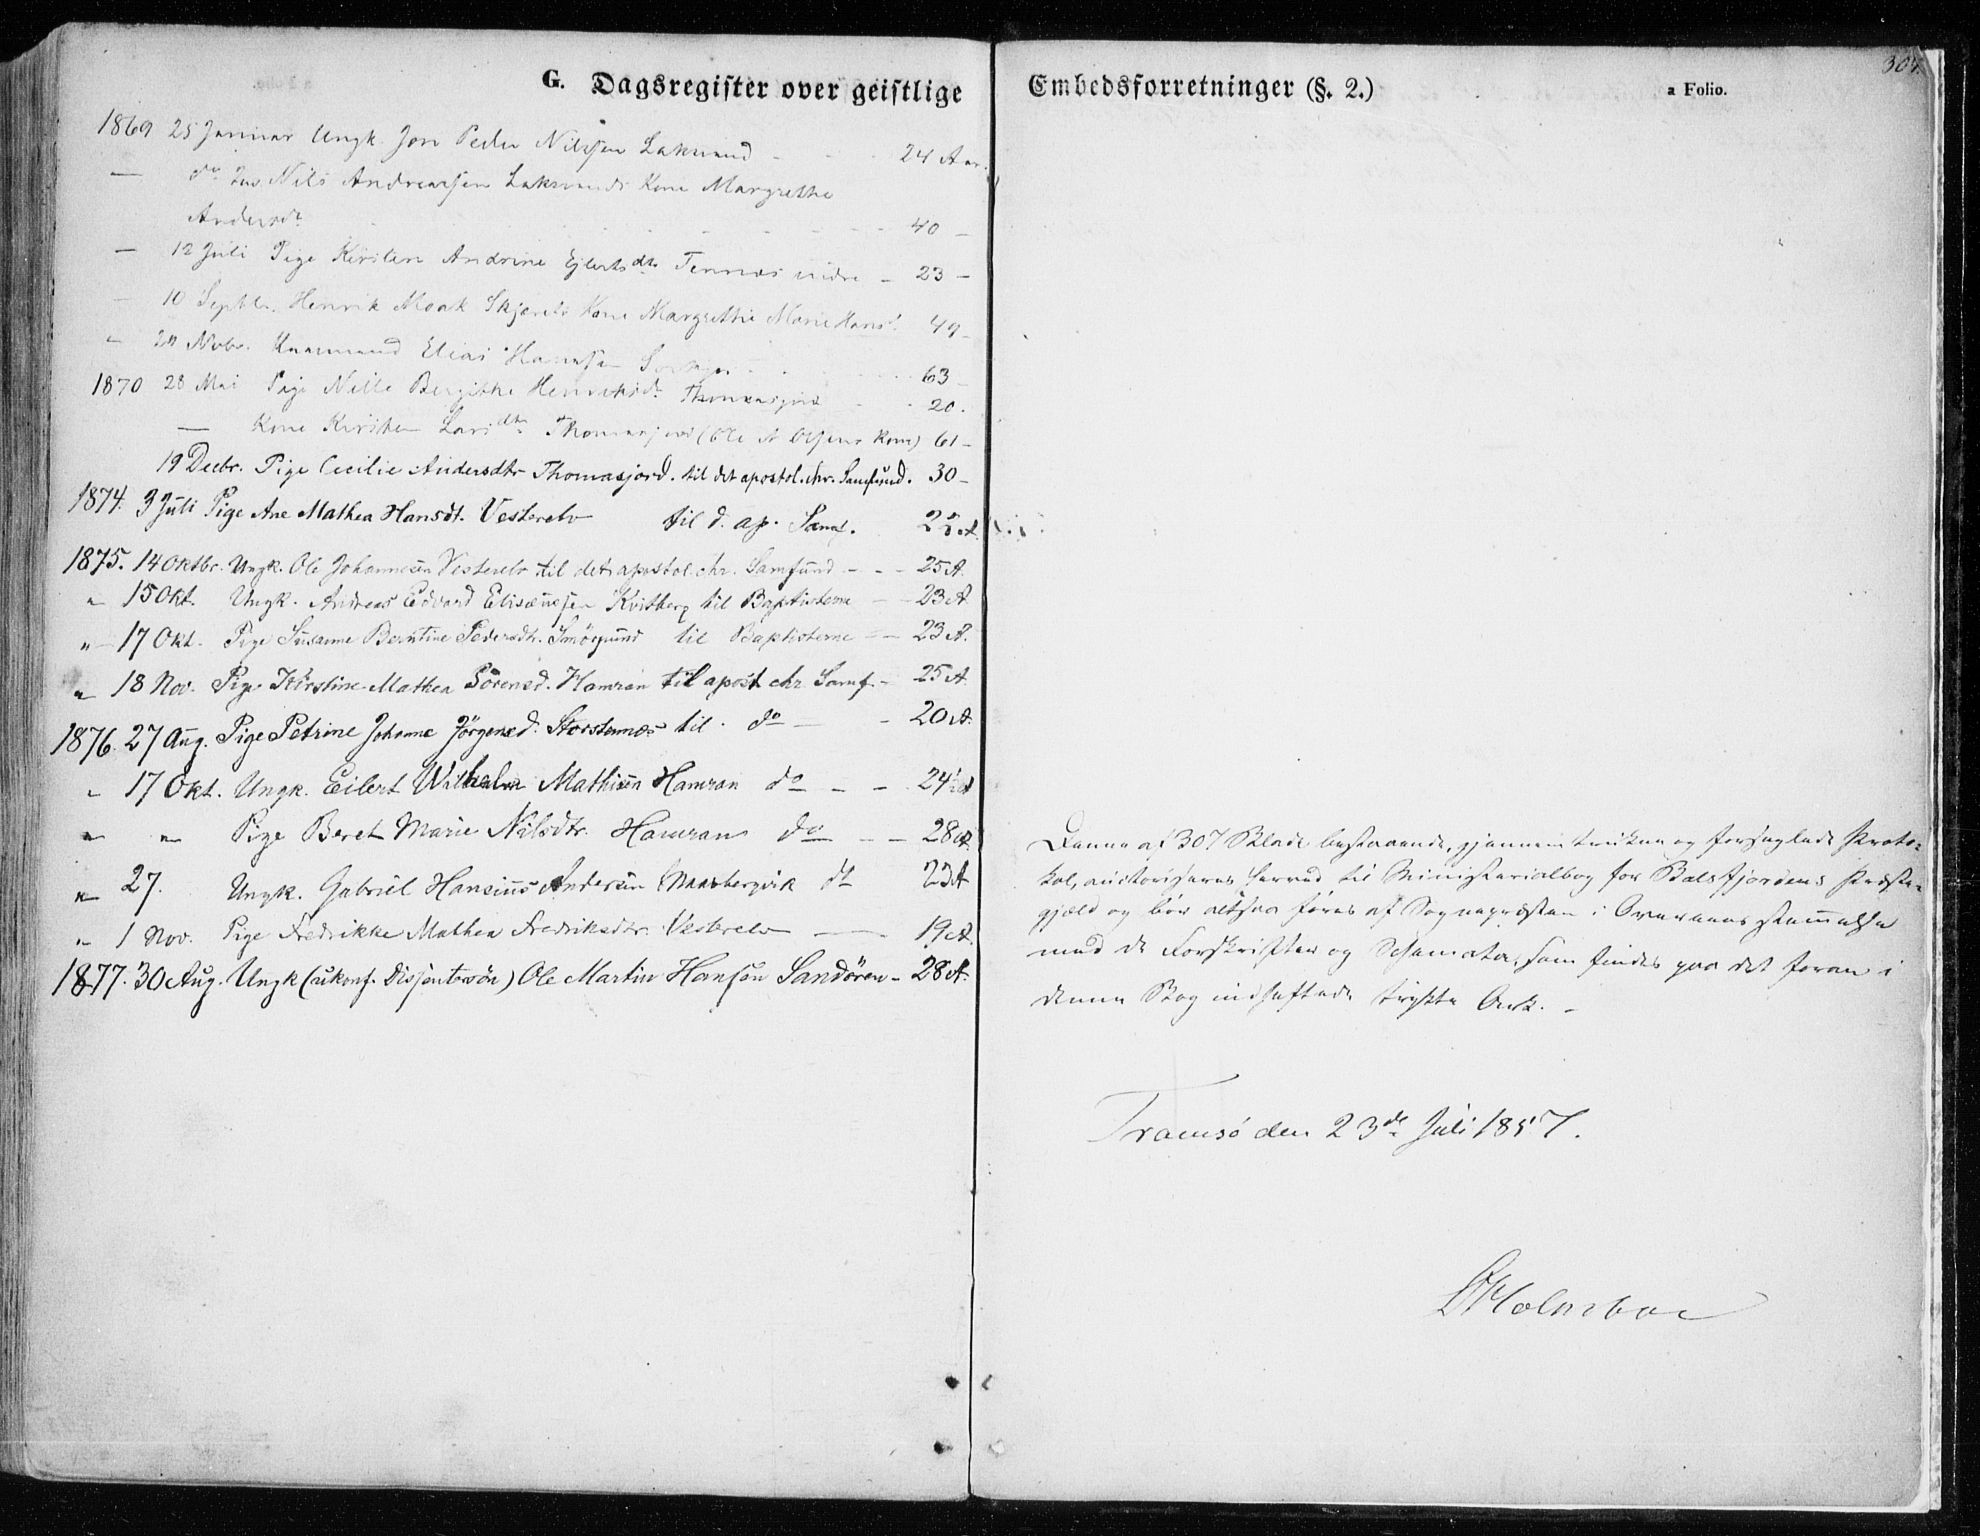 G. Dagsregister over geistlige
1869 25 Januar Ungk. Jon Peder Nilsen Laksvand - - - 24 Aar.
— do Nils Andreassen Laksvands Kone Margrethe
Andersdr - - - - - - - 40 —
— 12 Juli Pige Kirsten Andrine Ejlertsdtr Tennæs indre — 23 —
— 10 Septbr. Henrik Kone Margrethe Marie Hansd. 49 —
" Novbr. Elias Hansen - - - 63 —
1870 28 Mai Pige Nille Bergithe Henriksdr. - - 20.
— Kone Kirsten Larsdtr Thomasjord (Ole A Olsens Kone) 61 —
19 Decbr. Pige Cecilie Andersdtr Thomasjord. til det apostol. chr. Samfund. 30 —
1874. 3 Juli Pige Ane Mathea Hansdt. Vesterelv til d. ap. Samf.
1875. 14 Oktbr. Ungk. Ole Johannesen Vesterelv til det apostol. chr. Samfund - - - 25 A.
" 15 Okt. Ungk. Andreas Edvard Elisæussen Kvitberg til Baptisterne — — 23 A.
" — 17 Okt. Pige Susanne Berntine Pedersdtr. til Baptisterne — — 23 A.
" 18 Nov. Pige Kirstine Mathea Sörensd. Hamran til apost chr Samf. — 25 A.
1876. 27 Aug. Pige Petrine Johanne Jörgensd. Storstennæs til do — — 20 A.
" 17 Okt. Ungk. Eilert Mathisen Hamran do — — 24½ A
" " Pige Beret Marie Nilsdtr. Hamran do — — 28 A.
" 27. Ungk. Gabriel Hansinus Andersen do 23 A
" 1 Nov. Pige Fredrikke Mathea Fredriksdtr. Vesterelv — 19 A.
1877. 30 Aug. Ungk (ukonf. Dissentersön) Ole Martin Hansen Sandören — 28 A.
Embedsforretninger (§. 2.)
a Folio.
Denne af 307 Blade bestaaende, gjennemtrukne og forseglede Proto-
kol, auctoriseres herved til Ministerialbog for Balsfjordens Præste-
gjæld og bör altsaa föres af Sognepræsten i Overensstemmelse
med de Forskrifter og Schemata, som findes paa det foran i
denne Bog indheftede trykte Ark. —
Tromsö den 23de Juli 1857.
Holmboe